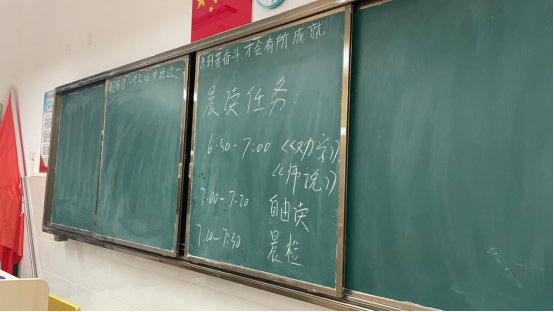 刻苦奋斗才会有所成就
晨读任务:
6:50-7:00 《劝学》
《师说》
7:00-7:20 自由读
7:20-7:30 晨检